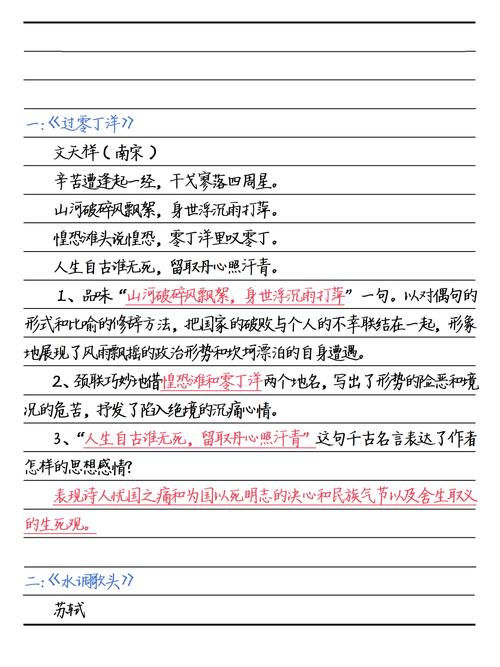 一:《过零丁洋》
文天样(南宋)
辛苦遭逢起一经,干戈寥落四周星。
山河破碎风飘絮,身世浮沉雨打萍。
惶恐滩头说惶恐,零丁洋里叹零丁。
人生自古谁无死,留取丹心照汗青。
1、品味“山河破碎风飘絮,身世浮沉雨打萍”一句。以对偶句的
形式和比喻的修辞方法,把国家的破败与个人的不幸联结在一起,形象
地展现了风雨飘摇的政治形势和坎坷漂泊的自身遭遇。
2、颈联巧妙地借惶恐滩和零丁洋两个地名,写出了形势的险恶和境
况的危苦,抒发了陷入绝境的沉痛心情。
3、“人生自古谁无死,留取丹心照汗青”这句千古名言表达了作者
怎样的思想感情?
表现诗人忧国之痛和为国以死明志的决心和民族气节以及舍生取义
的生死观。
二:《水调歌头》
苏轼